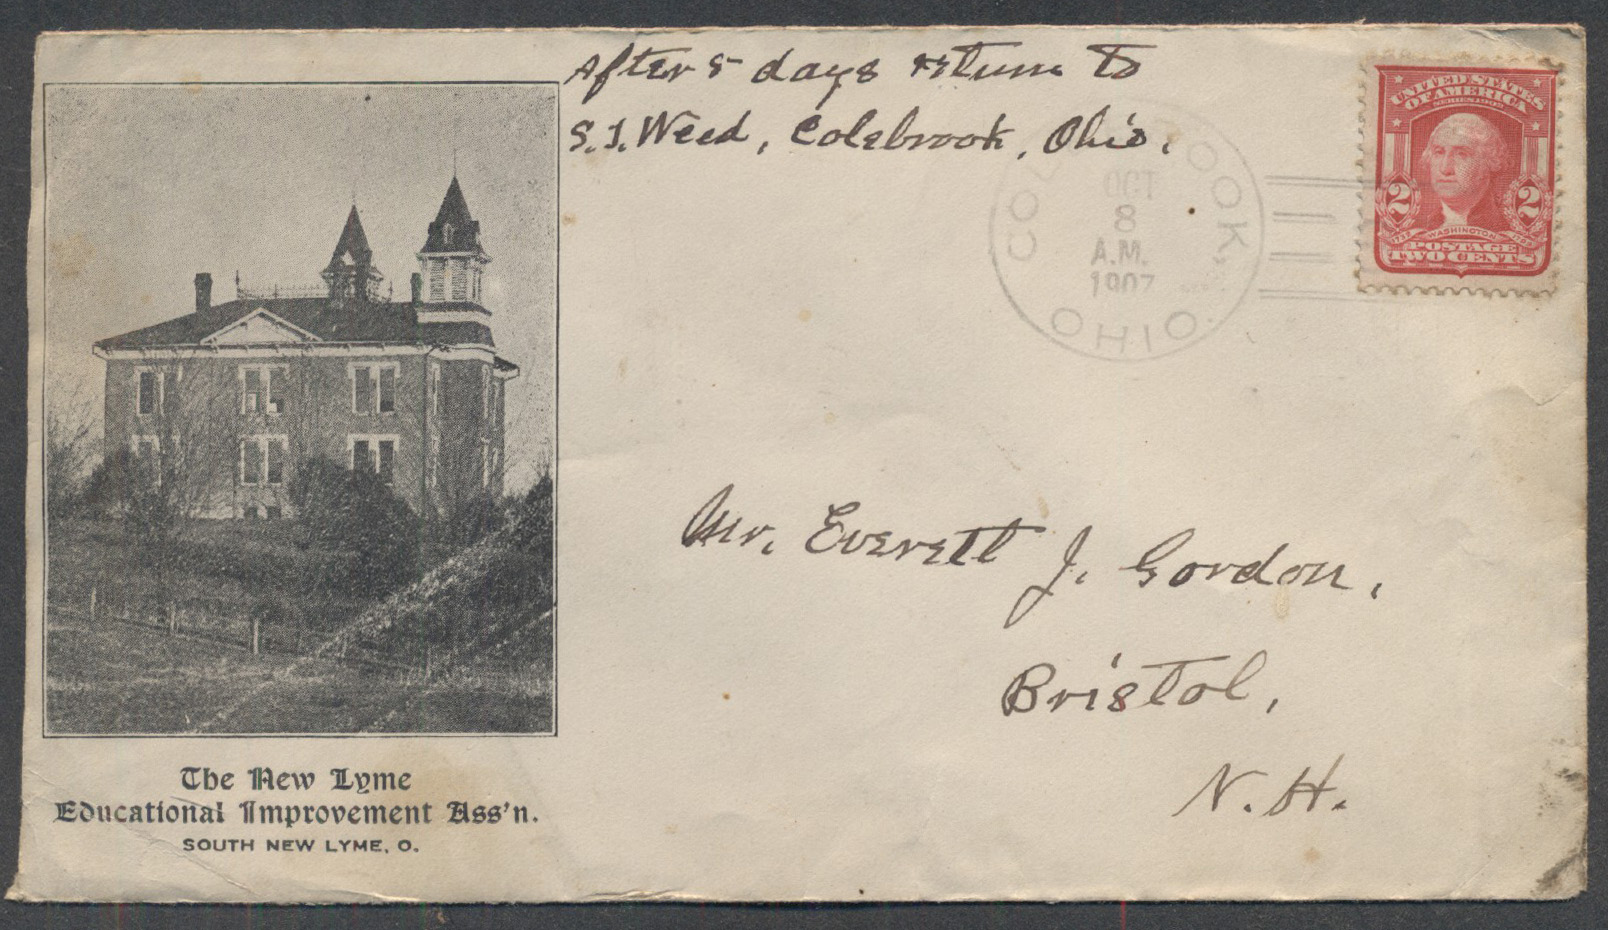 After 5 days return to
S.J. Weed, Colebrook, Ohio.
COLEBROOK,
OCT
8
A.M.
1907
OHIO
UNITED STATES
OF AMERICA
SERIES 1902
2 2
1732 WASHINGTON 1799
POSTAGE
TWO CENTS
Mr. Everett J. Gordon,
Bristol,
N. H.
The New Lyme
Educational Improvement Ass'n.
SOUTH NEW LYME, O.